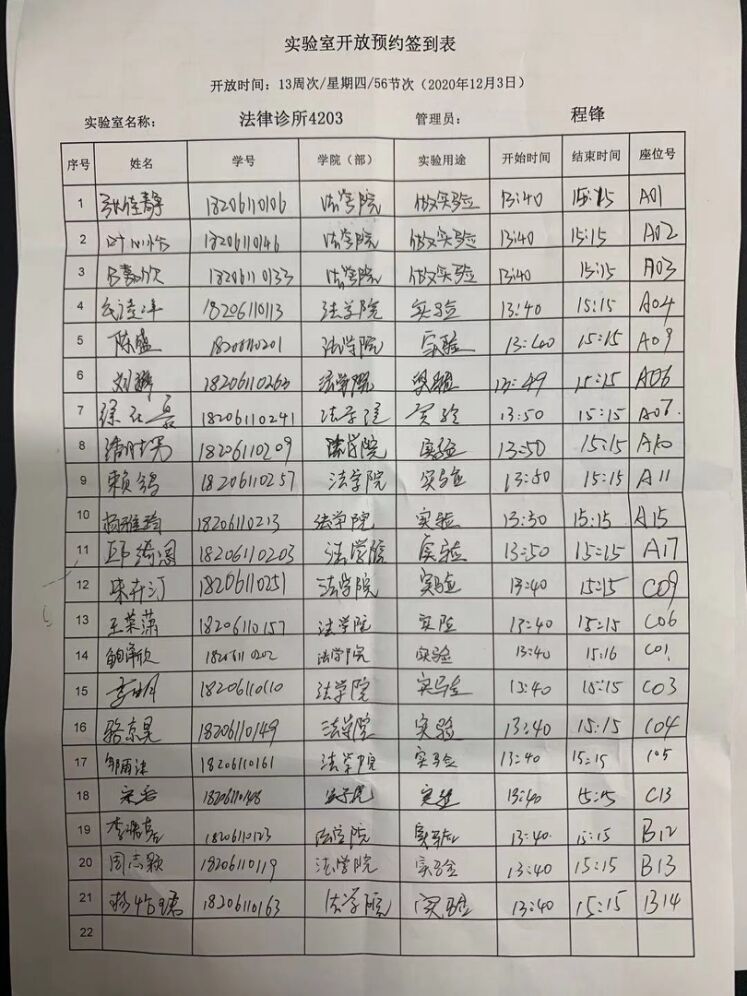 实验室开放预约签到表
开放时间：13周次/星期四/56节次（2020年12月3日）
实验室名称： 法律诊所4203 管理员： 程锋
序号 姓名 学号 学院（部） 实验用途 开始时间 结束时间 座位号
1 张佳静 18206110106 法学院 做实验 13:40 15:15 A01
2 18206110146 法学院 做实验 13:40 15:15 A02
3 18206110133 法学院 做实验 13:40 15:15 A03
4 18206110113 法学院 实验 13:40 15:15 A04
5 陈盛 18206110201 法学院 实验 13:40 15:15 A09
6 18206110263 法学院 实验 13:49 15:15 A06
7 徐 18206110241 法学院 实验 13:50 15:15
8 18206110209 法学院 实验 13:50 15:15 A10
9 赖 18206110257 法学院 实验 13:50 15:15 A11
10 杨雅 18206110213 法学院 实验 13:50 15:15 A15
11 邱绮 18206110203 法学院 实验 13:50 15:15 A17
12 18206110251 法学院 实验 13:40 15:15 C09
13 王荣潇 18206110157 法学院 实验 13:40 15:15 C06
14 18206110202 法学院 实验 13:40 15:16 C01
15 18206110110 法学院 实验 13:40 15:15 C03
16 骆京昊 18206110149 法学院 实验 13:40 15:15 C04
17 18206110161 法学院 实验 13:40 15:15 C05
18 18206110148 法学院 实验 13:40 15:15 C13
19 18206110123 法学院 实验 13:40 15:15 B12
20 周志颖 18206110119 法学院 实验 13:40 15:15 B13
21 18206110163 法学院 实验 13:40 15:15 B14
22